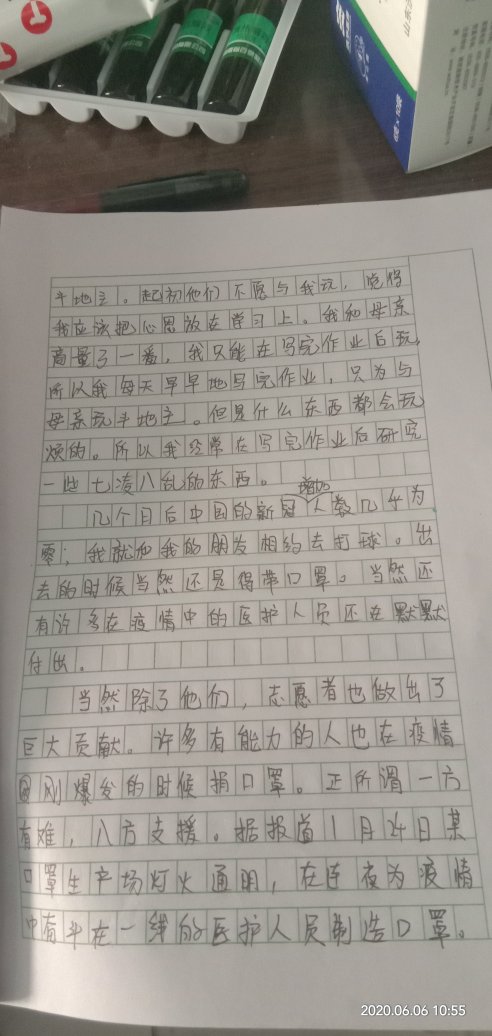 斗地主。起初他们不愿与我玩，觉得
我应该把心思放在学习上。我和母亲
商量了一番，我只能在写完作业后玩，
所以我每天早早地写完作业，只为与
母亲玩斗地主。但是什么东西都会玩
烦的。所以我经常在写完作业后研究
一些七凌八乱的东西。
几个月后中国的新冠增加人数几乎为
零；我就和我的朋友相约去打球。出
去的时候当然还是得带口罩。当然还
有许多在疫情中的医护人员还在默默
付出。
当然除了他们，志愿者也做出了
巨大贡献。许多有能力的人也在疫情
刚爆发的时候捐口罩。正所谓一方
有难，八方支援。据报道1月24日某
口罩生产场灯火通明，在连夜为疫情
中奋斗在一线的医护人员制造口罩。
2020.06.06 10:55